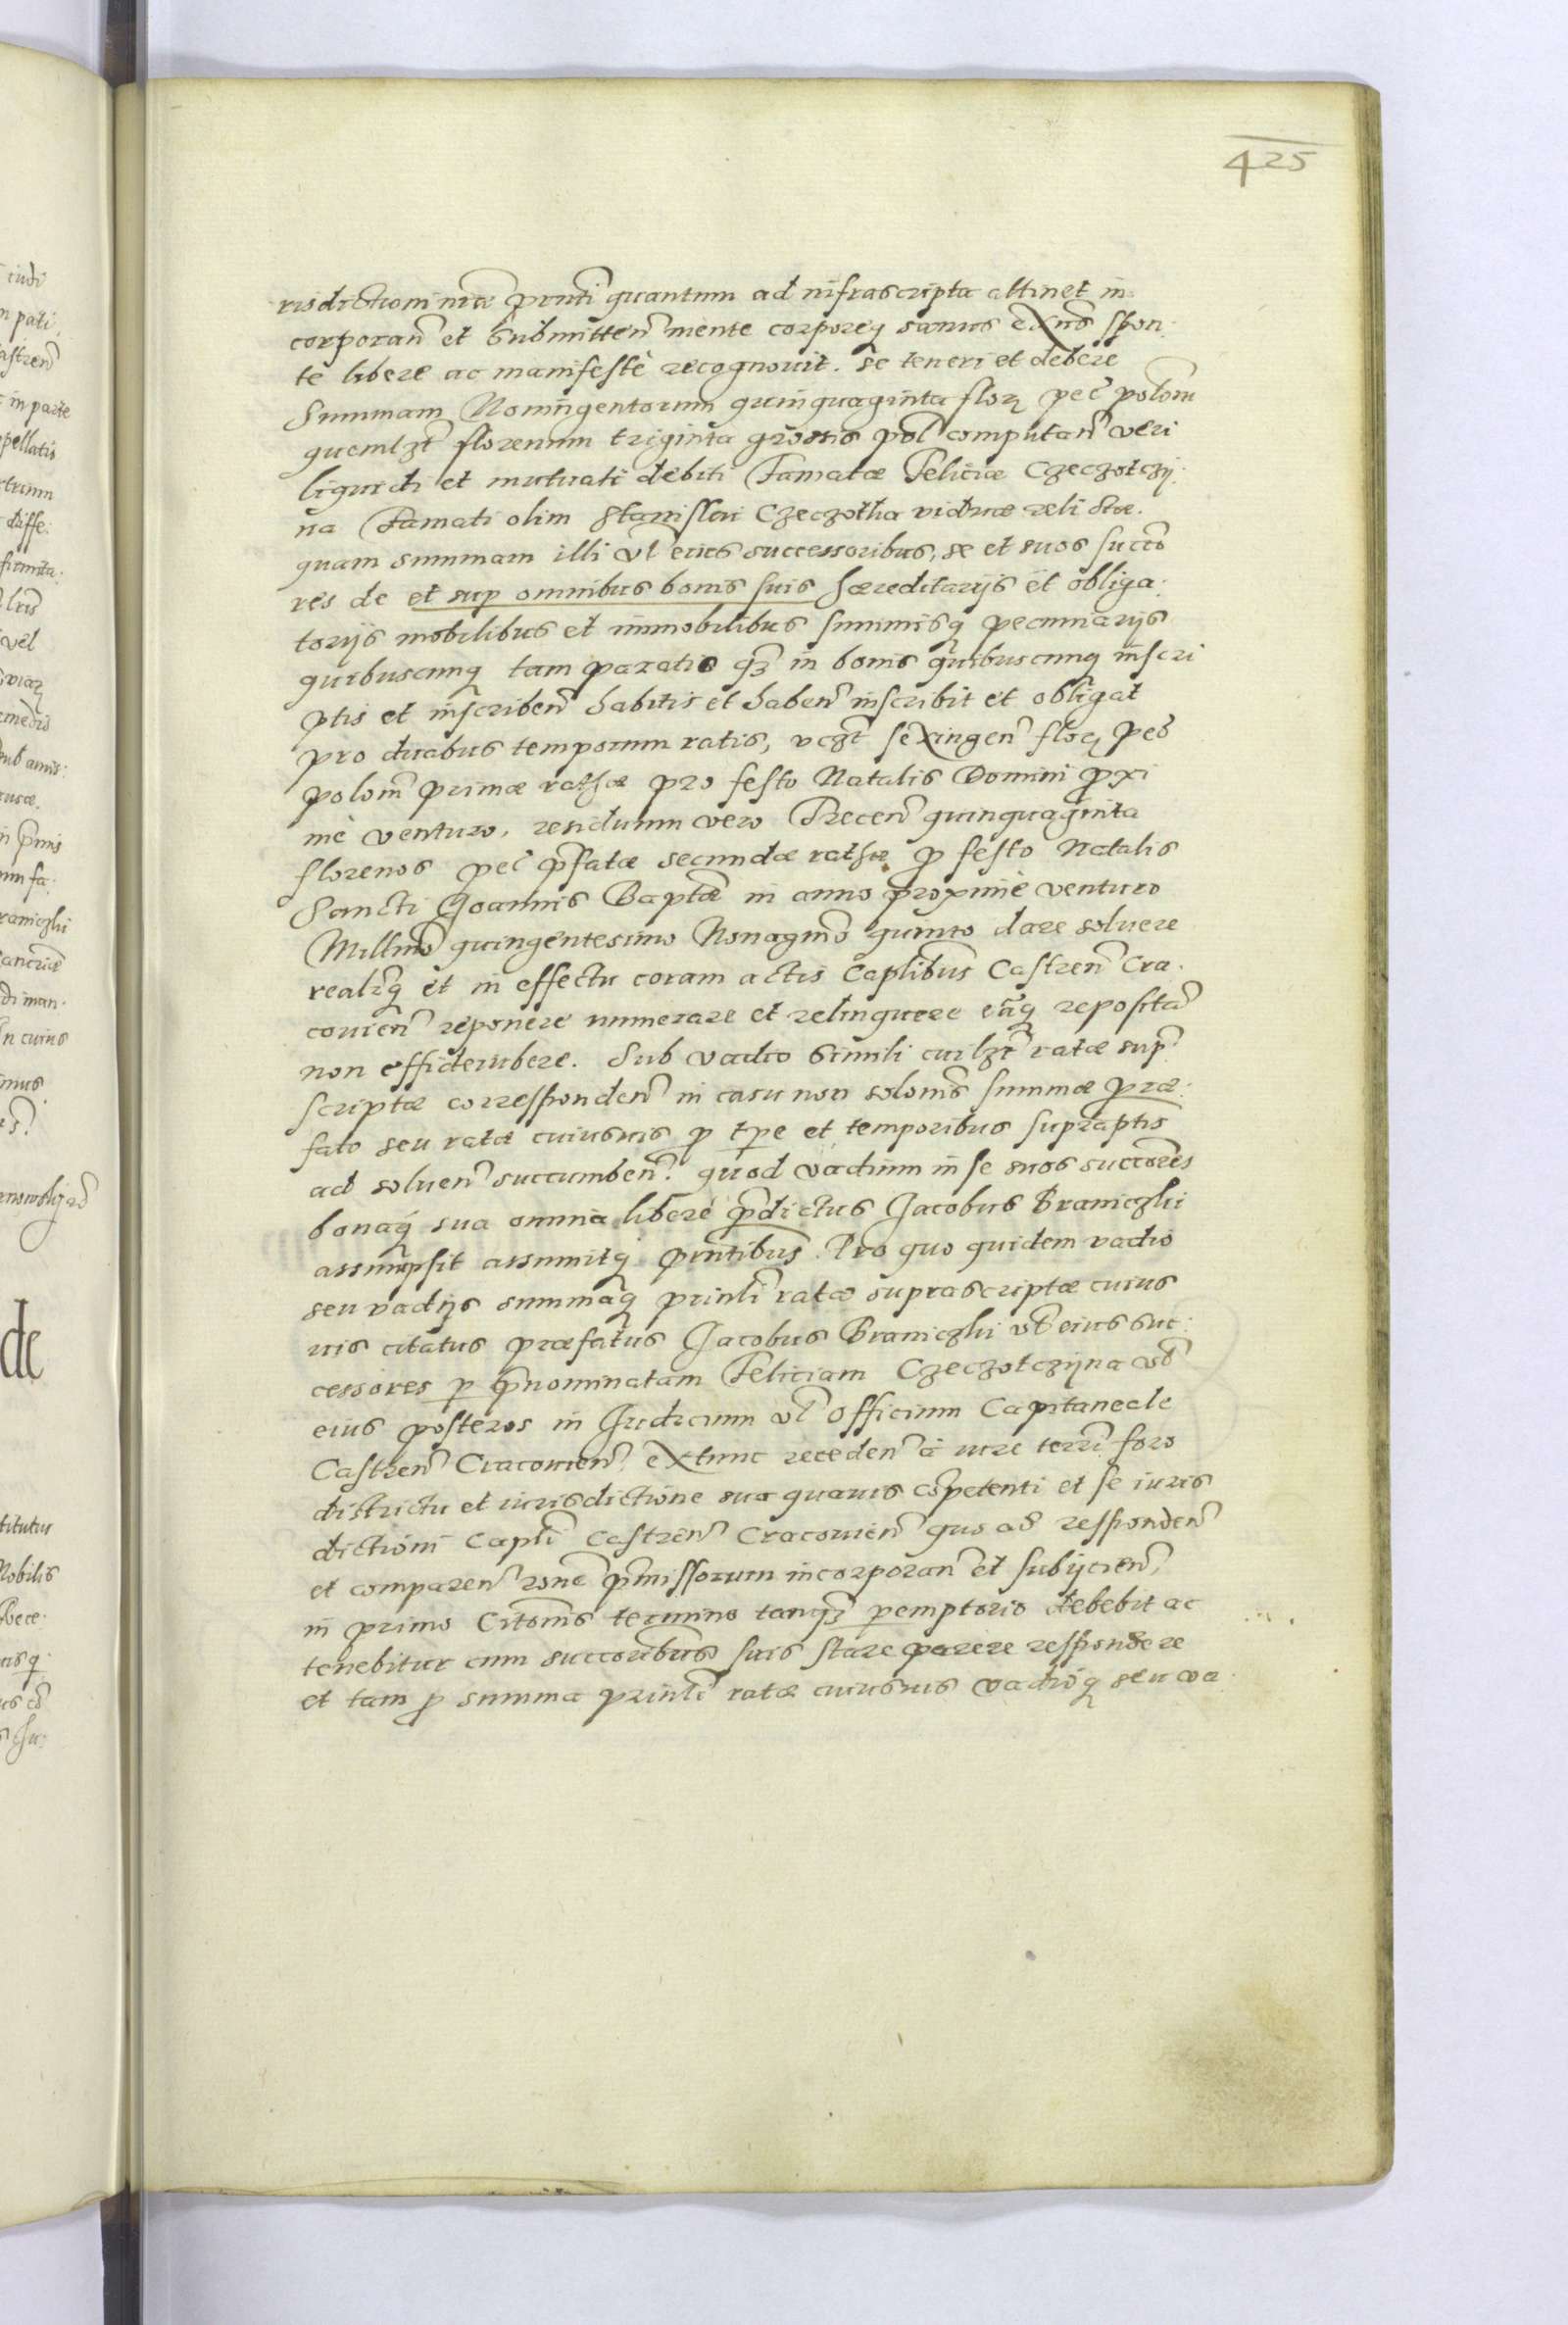 425
risdictioni nrae prnti quantum ad infrascripta attinet in
corporan et submitten mente corporeq sanus exns spon:
te libere ac manifeste recognouit. se teneri et debere
Summam Nonningentorum quinquaginta flor pec polom
quemlzt florenum triginta grossis pol computan veri
liquidi et mutuati debiti Famatae Feliciae Czeczotczy:
na Famati olim Stanislai Czeczotka viduae relictae.
quam summam illi vl eius successoribus, se et suos succo
res de et sup omnibus bonis suis haereditarijs et obliga:
torijs mobilibus et immobilibus summisq pecuniarijs
quibuscunq tam paratis qz in bonis quibuscunq inscri
ptis et inscriben habitis et haben inscribit et obligat
pro duabus temporum ratis, vczt sexingen flor pec
polom primae rathae pro festo Natalis Domini proxi
me venturo, residuum vero Trecen quinquaginta
florenos pec pfatae secundae rathae p festo Natalis
Sancti Joannis Baptae in anno proxime venturo
Millmo quingentesimo Nonagmo quinto dare soluere
realrq et in effectu coram actis Caplibus Castren Cra.
couien reponere numerare et relinquere eaq reposita
non efficterubere. Sub vadio simili cuilzt ratae sup
scriptae corresponden in casu non solonis summae prae:
fato seu ratae cuiusuis p tpe et temporibus supraptis
ad soluen succumben. quod vadium in se suos succores
bonaq sua omnia libere pdictus Jacobus Braniczki
assumpsit assumitq prntibus. Pro quo quidem vadio
seu vadijs summaq prinli ratae suprascriptae cuius
uis citatus praefatus Jacobus Braniczki vl eius suc:
cessores p pnominatam Feliciam Czeczotczijna vl
eius posteros in Judicium vl officium Capitaneale
Castren Cracouien. extunc receden a iure terri foro
districtu et iurisdictione sua quauis competenti et se iuris
dictioni Capli Castren Cracouien quo ad responden
et comparen rone pmissorum incorporan et subijcien,
in primo Citonis termino tanqz peremptorio debebit ac
tenebitur cum succoribus suis stare parere respondere
et tam p summa prinli ratae cuiusuis vadioq seu va